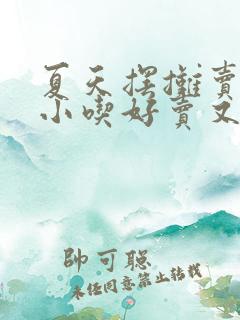 夏天摆摊卖
小吃好卖又
帥可聡
未经同意禁止转载